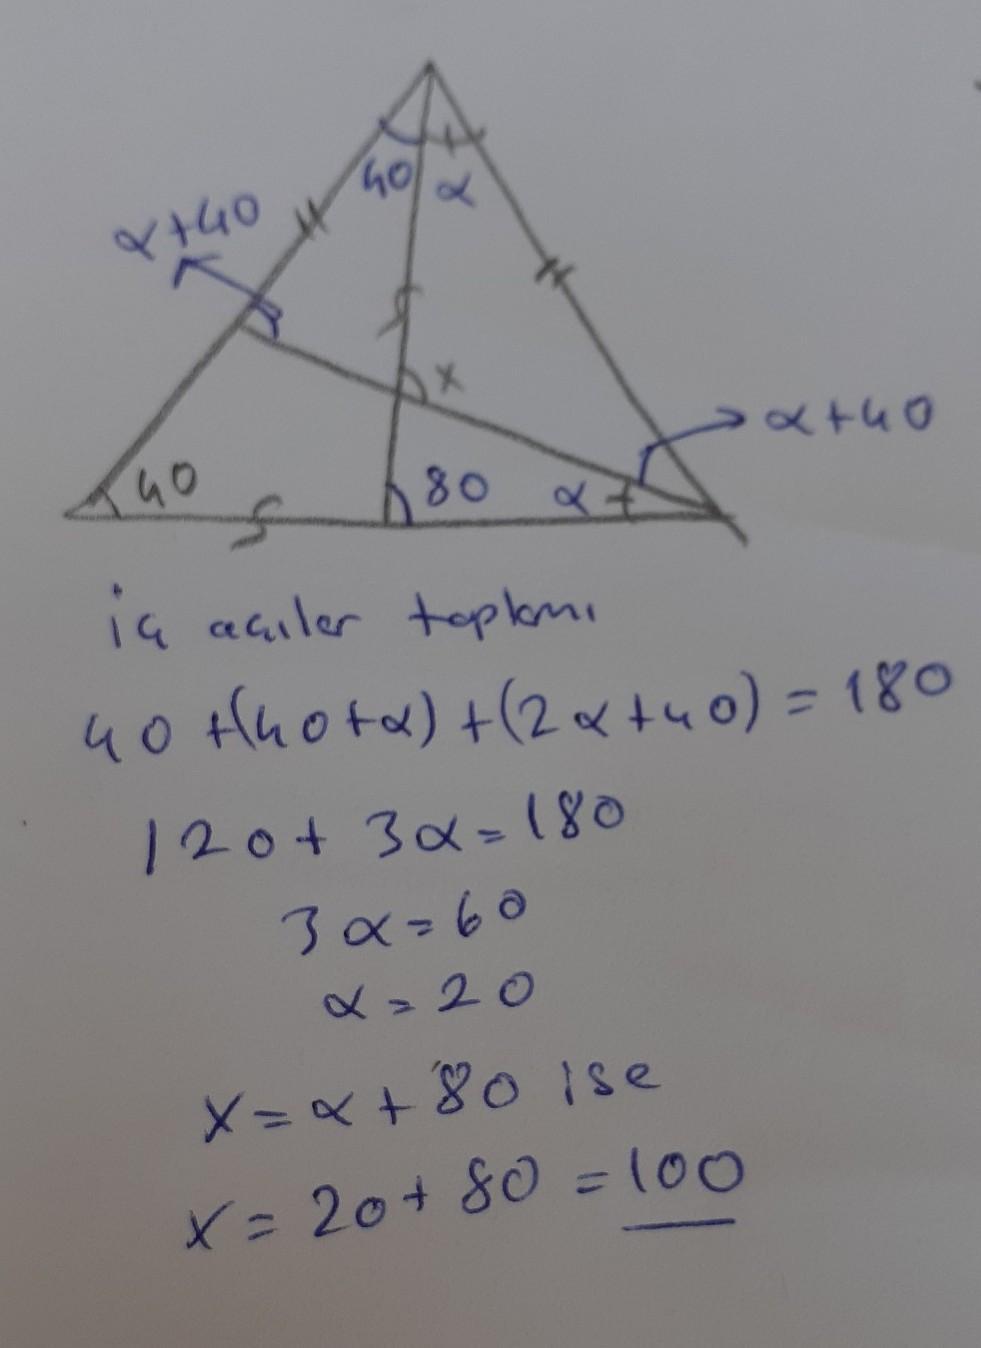 40 α
α+40
x
α+40
40
80 α
iç açılar toplamı
40+(40+α)+(2α+40)=180
120+3α=180
3α=60
α=20
x=α+80 ise
x=20+80=100